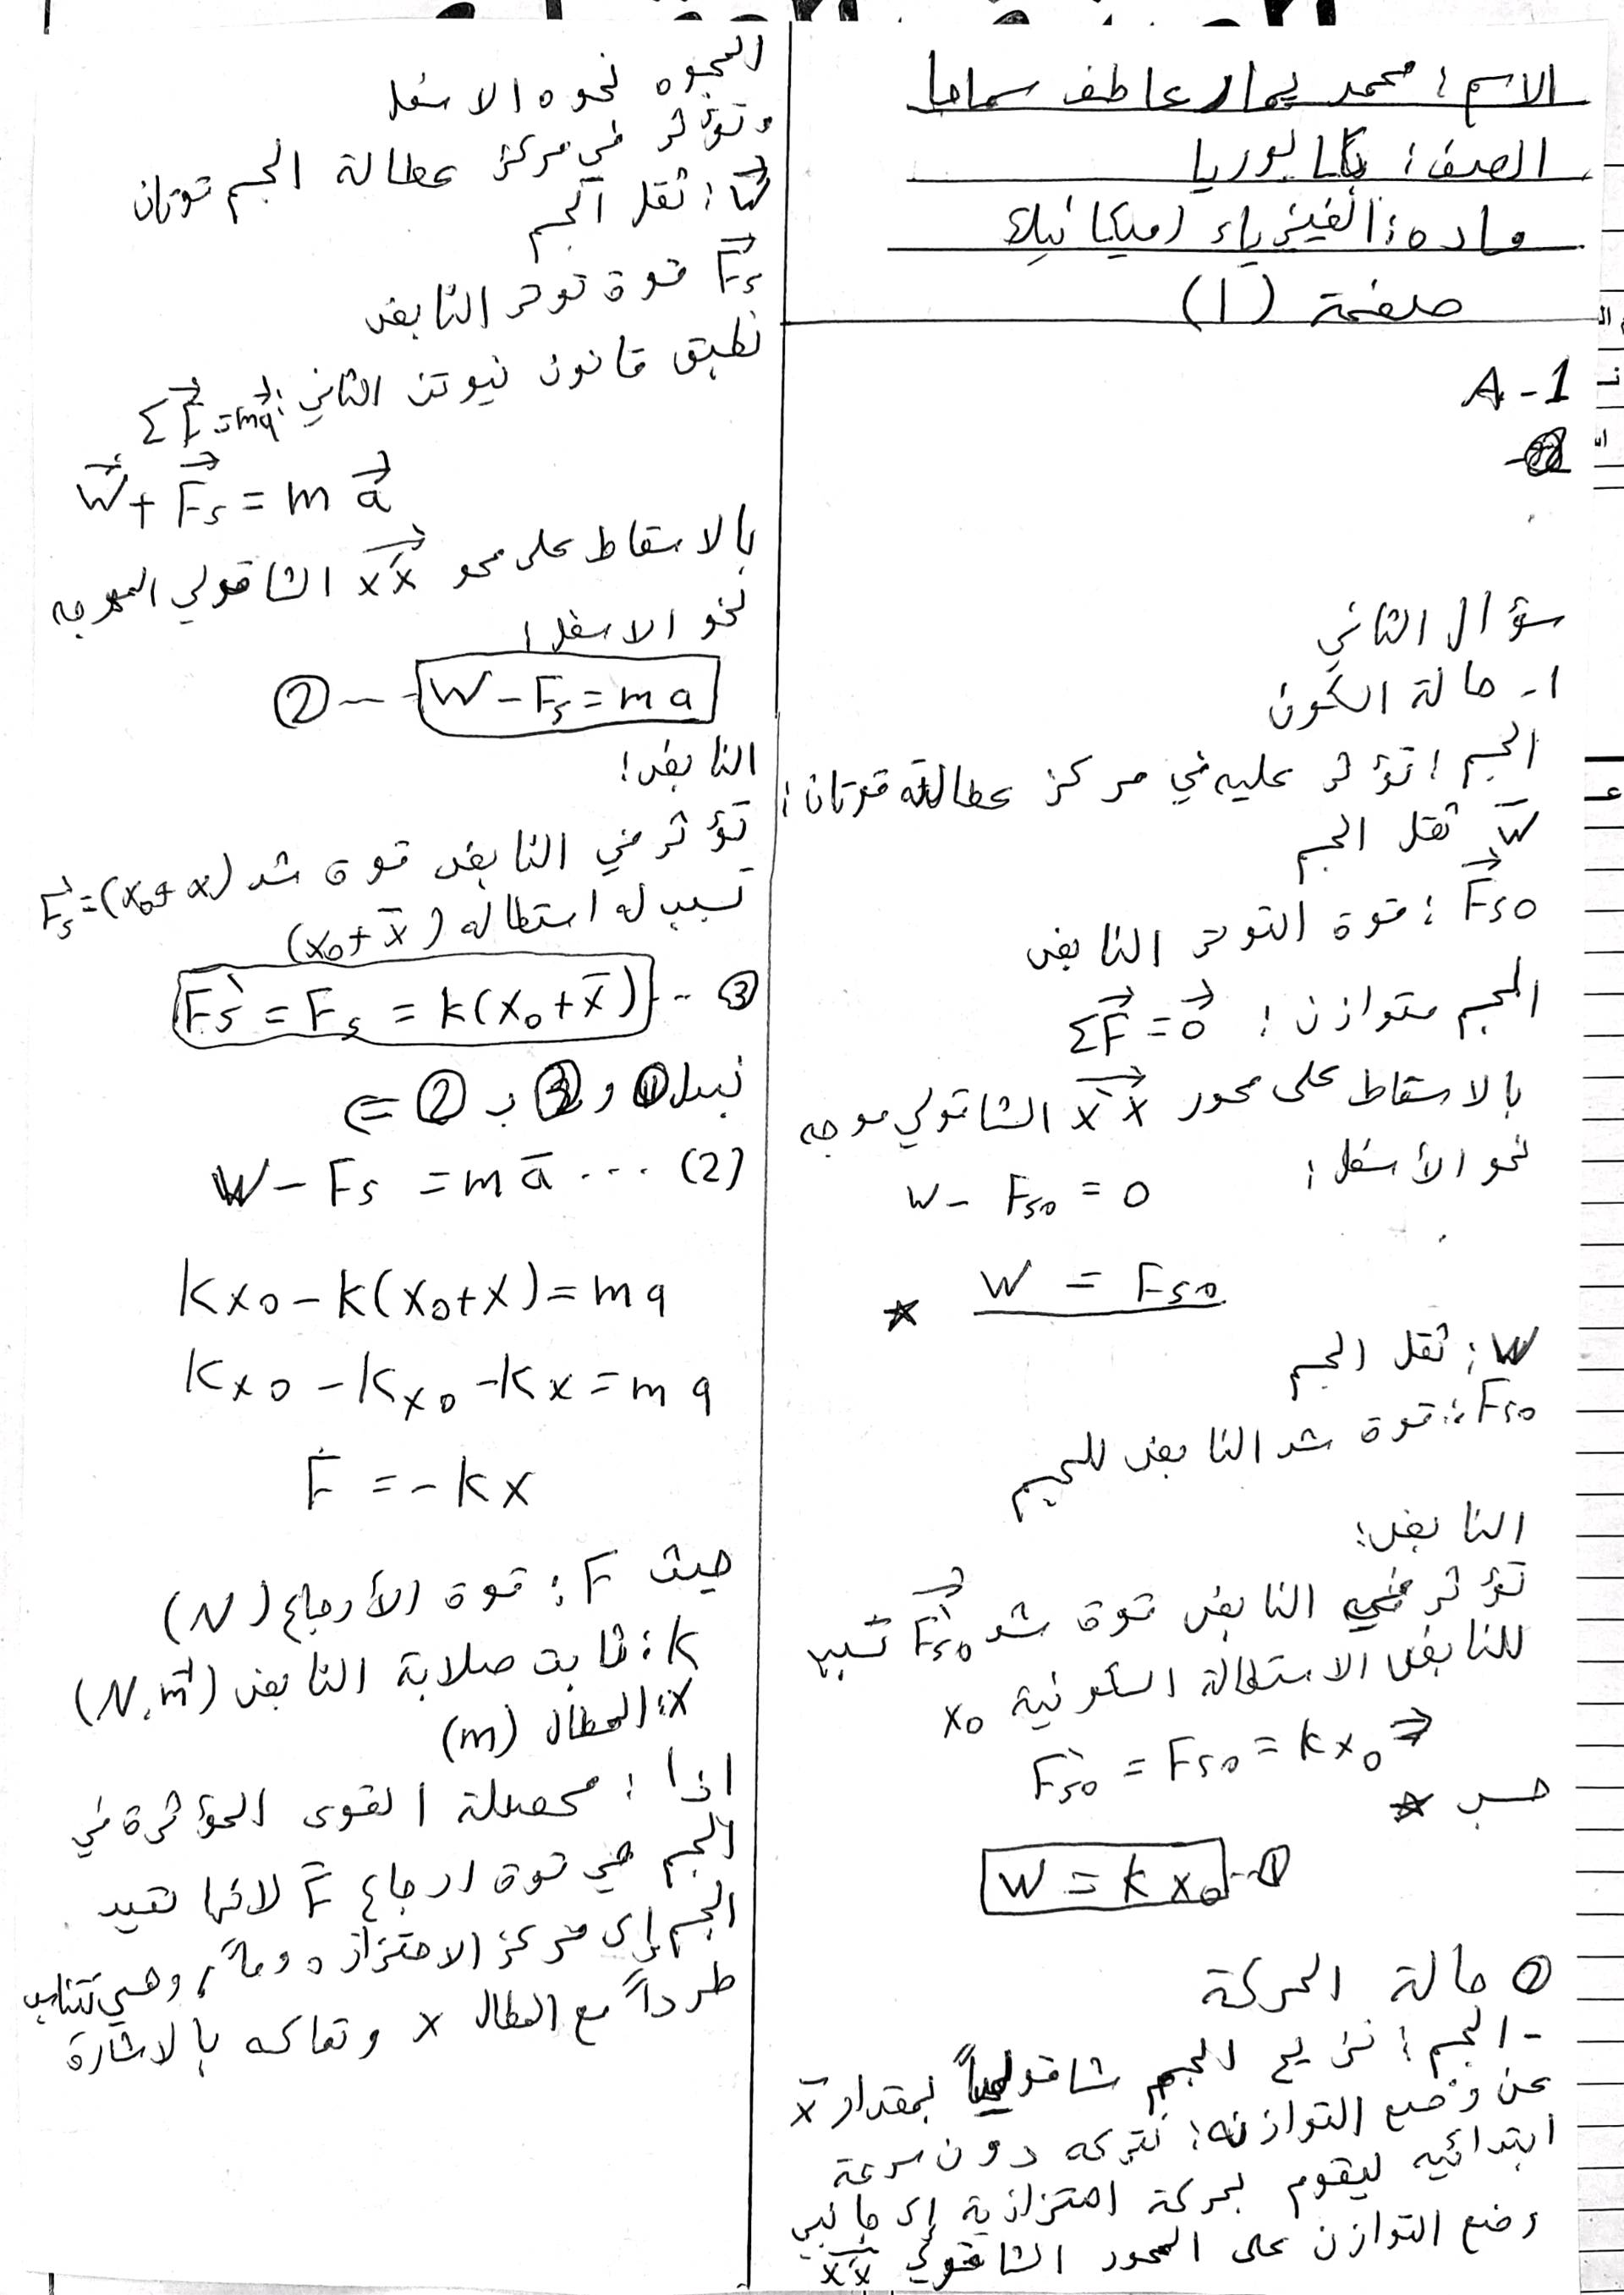 الاسم : محمد يمار عاطف سماحا
الصف : بكالوريا
ماده : الفيزياء (ميكانيك)
صفحة (1)
A-1
سؤال الثاني
1- حالة السكون
الجسم : تؤثر عليه في مركز عطالته قوتان :
W ثقل الجسم
Fs0 : قوة التوتر النابض
الجسم متوازن : ΣF = 0
بالاسقاط على محور x'x الشاقولي موجه
نحو الأسفل :
W - Fs0 = 0
* W = Fs0
W : ثقل الجسم
Fs0 : قوة شد النابض للجسم
النابض :
تؤثر في النابض قوة شد F's0 تسبب
للنابض الاستطالة السكونية x0
F's0 = Fs0 = kx0 ⇒
حسب *
W = k x0 -- ①
② حالة الحركة
- الجسم : نزيح الجسم شاقولياً بمقدار x
عن وضع التوازنه : نتركه دون سرعة
ابتدائيه ليقوم بحركة اهتزازية إلى جانبي
وضع التوازن على المحور الشاقولي x'x
الموجه نحوه الاسفل
وتؤثر في مركز عطالة الجسم قوتان
W : ثقل الجسم
Fs قوة توتر النابض
نطبق قانون نيوتن الثاني : ΣF = ma
W + Fs = m a
بالاسقاط على محو x'x الشاقولي الموجه
نحو الاسفل :
W - Fs = m a --- ②
النابض :
تؤثر في النابض قوة شد F's = (x0 + x)
تسبب له استطاله (x0 + x)
F's = Fs = k(x0 + x) -- ③
نبدل ① و ③ ب ② ⇐
W - Fs = m a ... (2)
kx0 - k(x0 + x) = ma
kx0 - kx0 - kx = ma
F = - kx
حيث F : قوة الأرجاع (N)
k : ثابت صلابة النابض (N.m⁻¹)
x : المطال (m)
اذا : محصلة القوى المؤثرة في
الجسم هي قوة ارجاع F لانها تعيد
الجسم إلى مركز الاهتزاز دوماً ، وهي تتناسب
طرداً مع المطال x وتعاكسه بالاشارة